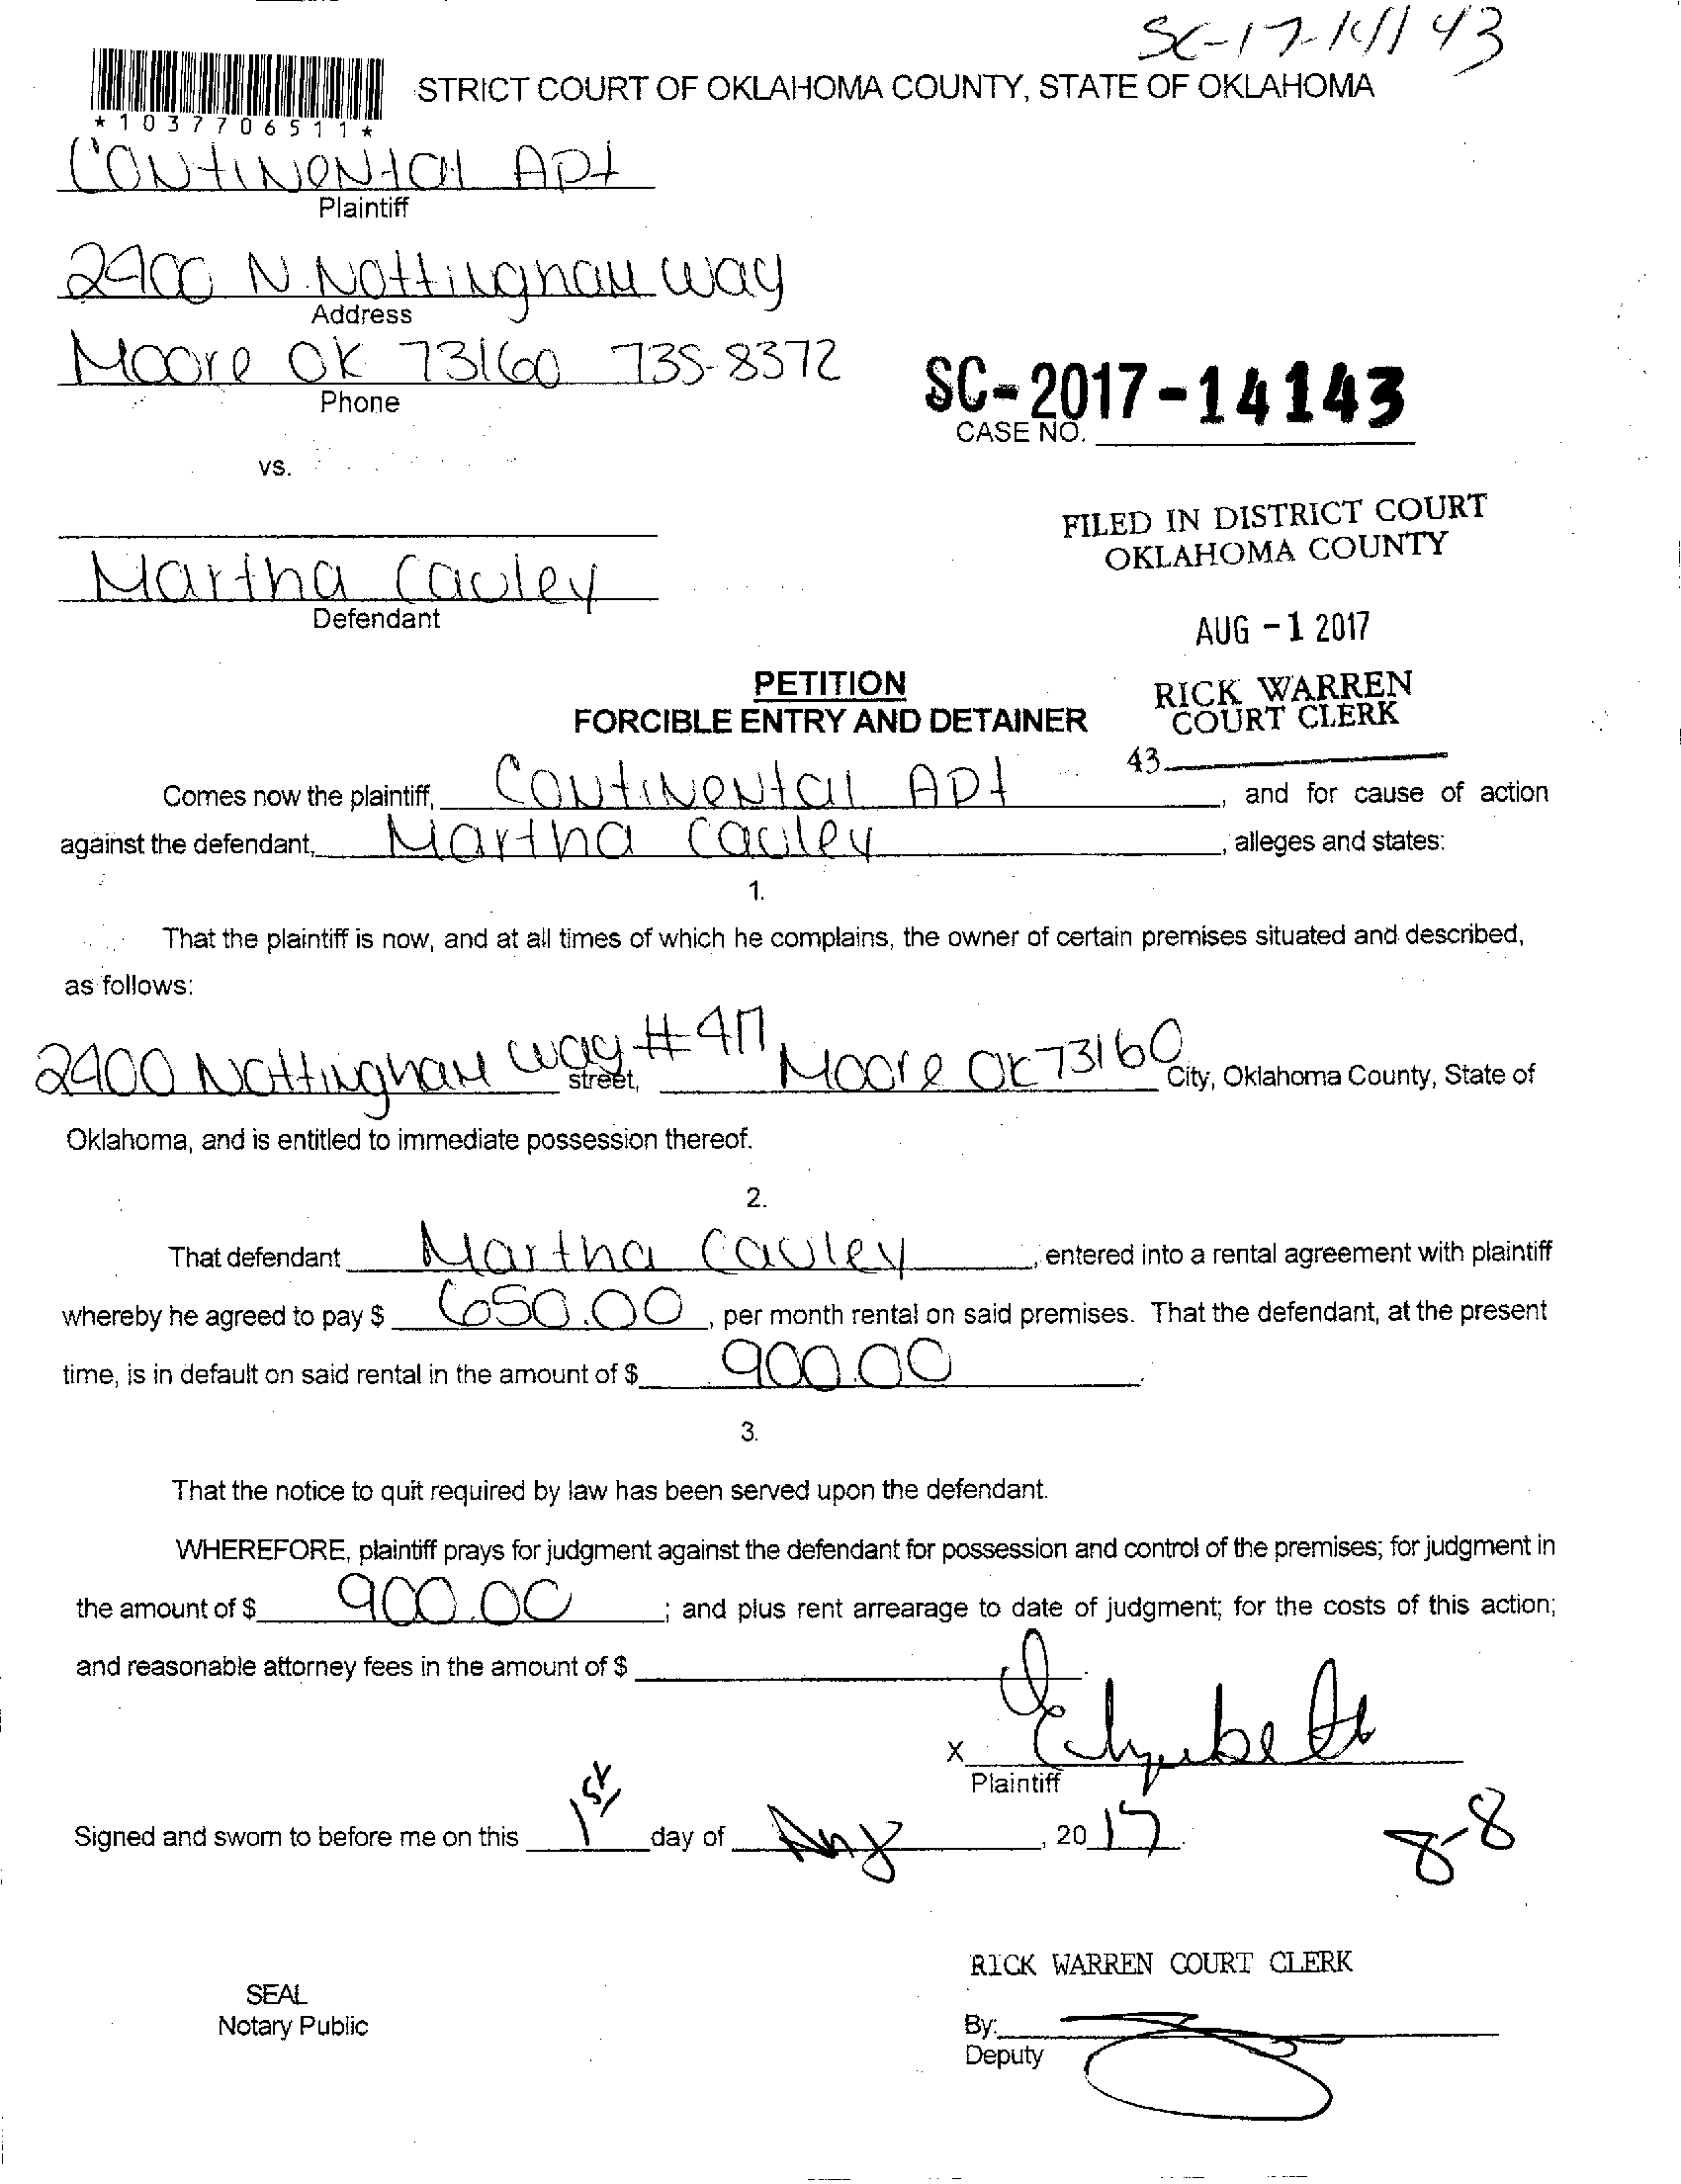 SC-17-14143
STRICT COURT OF OKLAHOMA COUNTY, STATE OF OKLAHOMA
*1037706511*
Continental Apt
Plaintiff
2900 N. Nottingham Way
Address
Moore OK 73160 735-8372
Phone
SC-2017-14143
CASE NO.
vs.
FILED IN DISTRICT COURT
OKLAHOMA COUNTY
Martha Cauley
Defendant
AUG -1 2017
PETITION
FORCIBLE ENTRY AND DETAINER
RICK WARREN
COURT CLERK
43
Comes now the plaintiff, Continental Apt, and for cause of action
against the defendant, Martha Cauley, alleges and states:
1.
That the plaintiff is now, and at all times of which he complains, the owner of certain premises situated and described,
as follows:
2900 Nottingham Way #417 street, Moore OK 73160 City, Oklahoma County, State of
Oklahoma, and is entitled to immediate possession thereof.
2.
That defendant Martha Cauley, entered into a rental agreement with plaintiff
whereby he agreed to pay $ 650.00, per month rental on said premises. That the defendant, at the present
time, is in default on said rental in the amount of $ 900.00.
3.
That the notice to quit required by law has been served upon the defendant.
WHEREFORE, plaintiff prays for judgment against the defendant for possession and control of the premises; for judgment in
the amount of $ 900.00; and plus rent arrearage to date of judgment; for the costs of this action;
and reasonable attorney fees in the amount of $
X
Plaintiff
Signed and sworn to before me on this 1st day of Aug, 20 17.
8-8
RICK WARREN COURT CLERK
SEAL
Notary Public
By:
Deputy